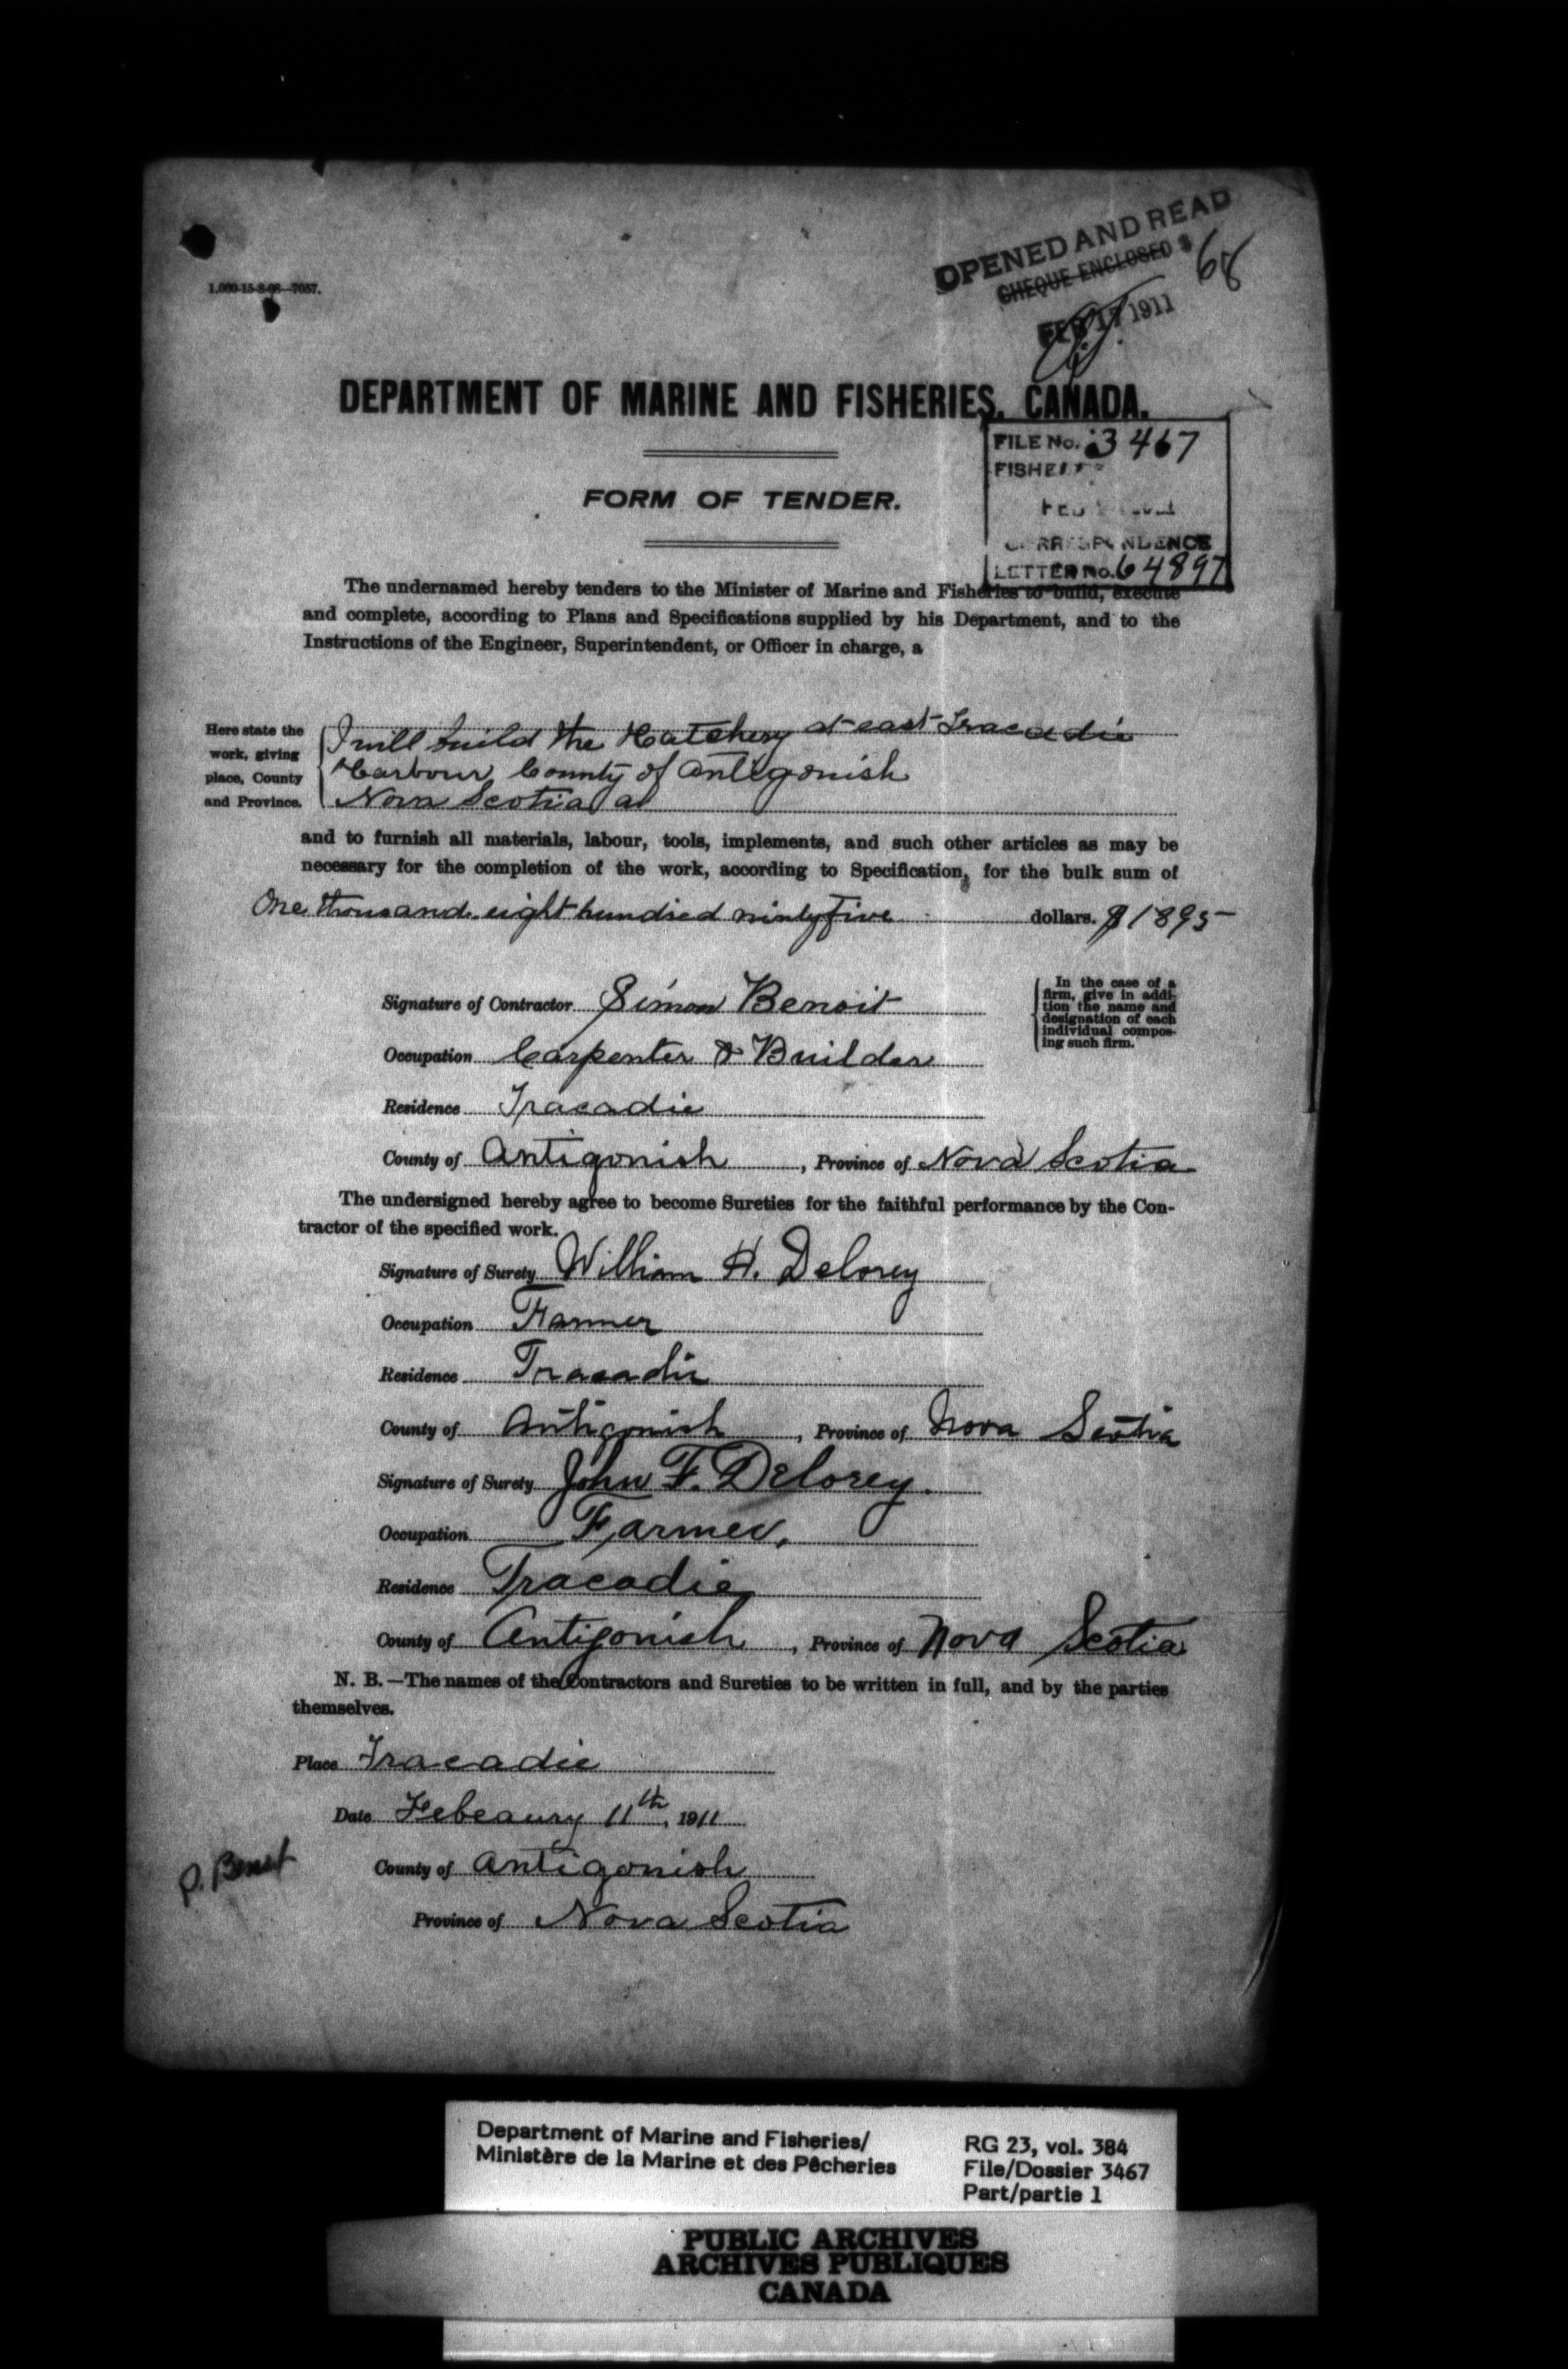 OPENED AND READ
CHEQUE ENCLOSED $
68
FEB 17 1911
1,000-15-8-08—7057.
DEPARTMENT OF MARINE AND FISHERIES, CANADA.
FILE No. 3467
FORM OF TENDER.
CORRESPONDENCE
LETTER No. 64897
The undernamed hereby tenders to the Minister of Marine and Fisheries to build, execute
and complete, according to Plans and Specifications supplied by his Department, and to the
Instructions of the Engineer, Superintendent, or Officer in charge, a
Here state the
work, giving
place, County
and Province.
I will build the Hatchery at east Tracadie
Harbour, County of Antigonish
Nova Scotia
and to furnish all materials, labour, tools, implements, and such other articles as may be
necessary for the completion of the work, according to Specification, for the bulk sum of
One thousand eight hundred ninty five dollars. $1895
Signature of Contractor Simon Benoit
In the case of a
firm, give in addi-
tion the name and
designation of each
individual compos-
ing such firm.
Occupation Carpenter & Builder
Residence Tracadie
County of Antigonish, Province of Nova Scotia
The undersigned hereby agree to become Sureties for the faithful performance by the Con-
tractor of the specified work.
Signature of Surety William H. Delorey
Occupation Farmer
Residence Tracadie
County of Antigonish, Province of Nova Scotia
Signature of Surety John F. Delorey.
Occupation Farmer,
Residence Tracadie
County of Antigonish, Province of Nova Scotia
N. B.—The names of the Contractors and Sureties to be written in full, and by the parties
themselves.
Place Tracadie
Date Febeaury 11th, 1911
County of Antigonish
Province of Nova Scotia
Department of Marine and Fisheries/
Ministère de la Marine et des Pêcheries
RG 23, vol. 384
File/Dossier 3467
Part/partie 1
PUBLIC ARCHIVES
ARCHIVES PUBLIQUES
CANADA